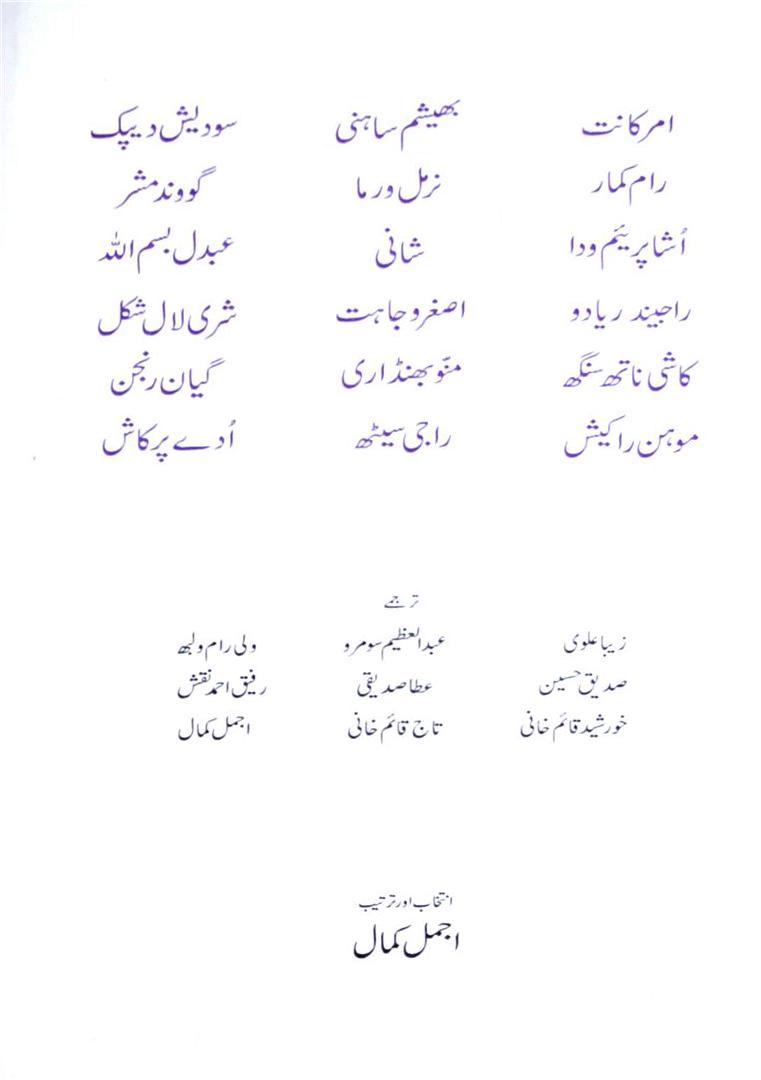 امرکانت بھیشم ساہنی سودیش دیپک
رام کمار نرمل ورما گووند مشر
اُشا پریئم ودا شانی عبدل بسم اللہ
راجیندر یادو اصغر وجاہت شری لال شکل
کاشی ناتھ سنگھ منّو بھنڈاری گیان رنجن
موہن راکیش راجی سیٹھ اُدے پرکاش
ترجمے
زیبا علوی عبدالعظیم سومرو ولی رام ولبھ
صدیق حسین عطا صدیقی رفیق احمد نقش
خورشید قائم خانی تاج قائم خانی اجمل کمال
انتخاب اور ترتیب
اجمل کمال